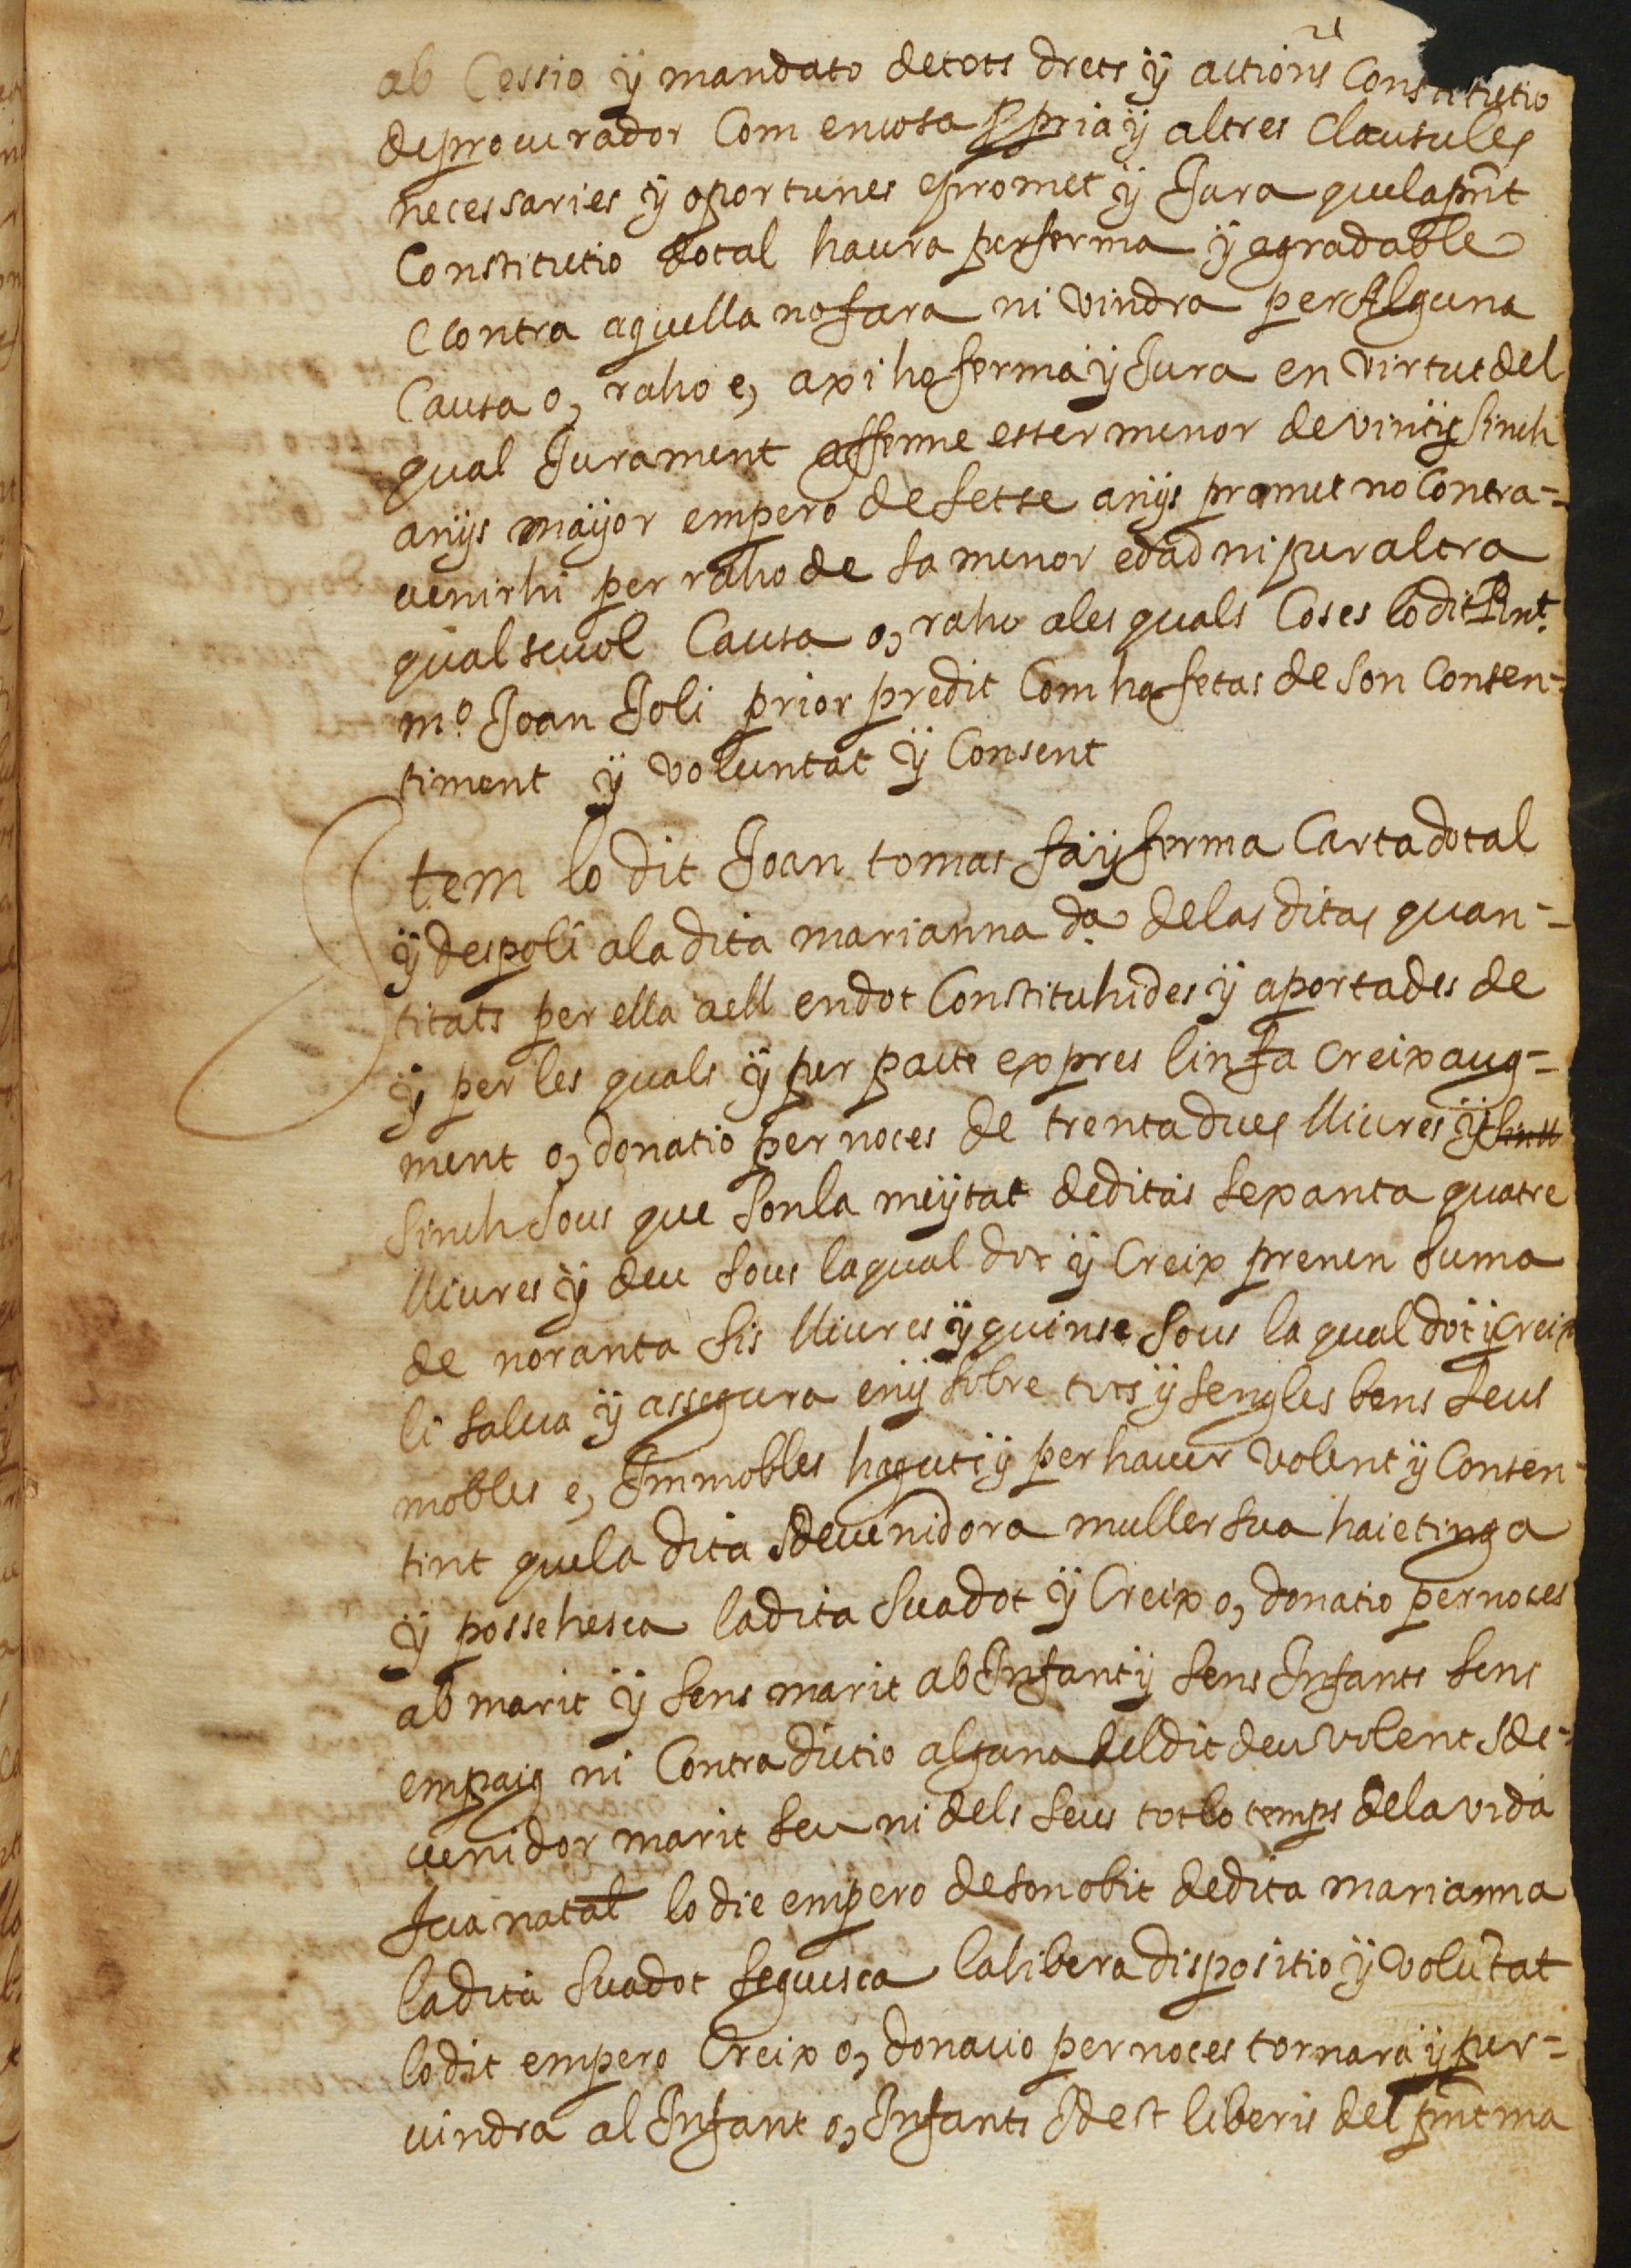 ab Cessio ÿ mandato detots drets ÿ actions Constitutio
deprocurador Com encosa ppria ÿ altres Clausules
necessaries ÿ oportunes epromet ÿ Jura quelapnt
Constitutio dotal haura perferma ÿ agradable
Contra aquella nofara ni vindra perAlguna
Causa o, raho e, axi ho fermaÿJura en virtutdel
qual Jurament afferme essermenor devintÿSinch
anÿs maÿor empero desetse anÿs promet noContra=
uenirhi per raho de sa menor edad niperaltra
qualseuol Causa o, raho ales quals Coses lodit
mº. Joan Joli prior predit Com hafetas de son Consen=
timent ÿ voluntat ÿ Consent
Item lo dit Joan tomas fa ÿ ferma Cartadotal
ÿ despoli aladita marianna da. delasditas quan=
titats per ella aell endot Constituhides ÿ aportades de
ÿ per les quals ÿ per pacte expres linfa Creixaug=
ment o, donatio per noces de trentadues lliures ÿ sinch
Sinch Sous que Sonla meÿtat deditas sexanta quatre
lliures ÿ deu sous laqual dot ÿ Creix prenen suma
de noranta sis lliures ÿ quinse sous la qual dotÿCreix
li salua ÿ assegura enÿ sobre totsÿsengles bens seus
mobles e, Immobles hagutsÿ perhauer Volent ÿ Consen=
tint quela dita sdeuenidora mullersua haietinga
ÿ possehesca ladita Suadot ÿ Creix o, donatio pernoces
ab marit ÿ sens marit abInfantÿ sens Infants sens
empaig ni Contradictio alguna deldit seu volent sde=
uenidor marit seu ni dels seus totlo temps delavida
sua natal lo die empero desonobit dedita marianna
ladita suadot seguesca lalibera dispositio ÿ volũtat
lodit empero Creix o, donacio pernoces tornaraÿ per=
uindra al Infant o, Infants Idest liberis del pnt ma